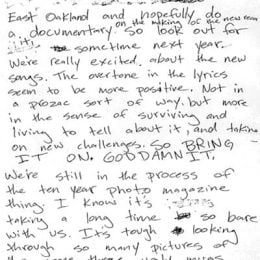 East Oakland and hopefully do
a documentary on the making of the new record
it. So look out for
sometime next year.
We're really excited about the new
songs. The overtone in the lyrics
seem to be more positive. Not in
a prozac sort of way, but more
in the sense of surviving and
living to tell about it, and taking
on new challenges. So BRING
IT ON. GODDAMNIT.
We're still in the process of
the ten year photo magazine
thing. I know it's
taking a long time so bare
with us. It's tough looking
through so many pictures of